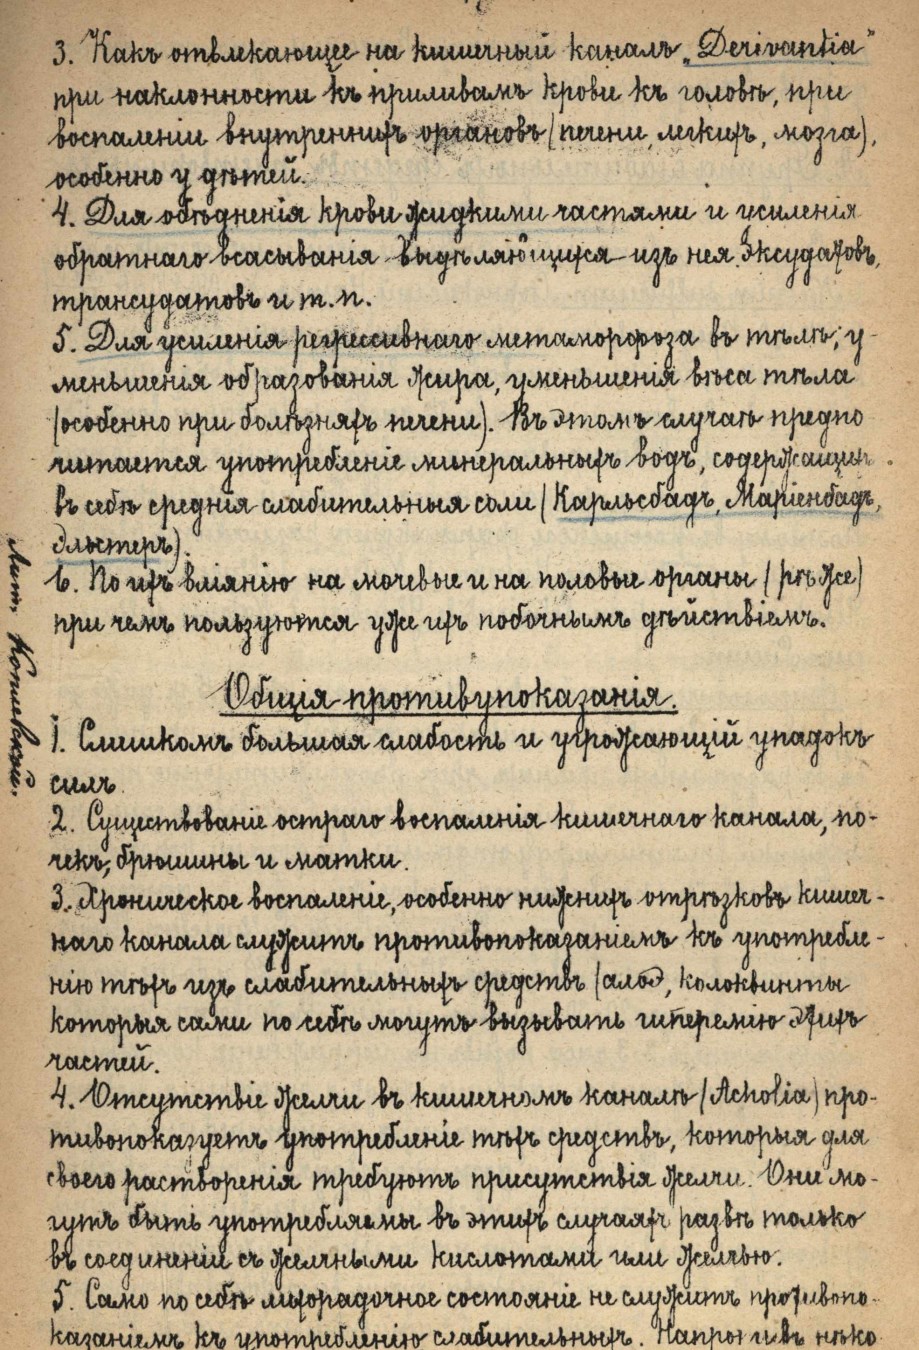 3. Какъ отвлекающее на кишечный каналъ „Derivantia"
при наклонности къ приливамъ крови къ головѣ, при
воспаленіи внутреннихъ органовъ (печени, легкихъ, мозга),
особенно у дѣтей.
4. Для объѣдненія крови жидкими частями и усиленія
обратнаго всасыванія выдѣляющихся изъ нея эксудатовъ,
трансудатовъ и т.п.
5. Для усиленія регрессивнаго метаморфоза въ тѣлѣ, у-
меньшенія образованія жира, уменьшенія вѣса тѣла
(особенно при болѣзняхъ печени). Въ этомъ случаѣ предпо
читается употребленіе минеральныхъ водъ, содержащихъ
въ себѣ среднія слабительныя соли (Карльсбадъ, Маріенбадъ,
Эльстеръ).
6. По ихъ вліянію на мочевые и на половые органы (рѣже)
при чемъ пользуются уже ихъ побочнымъ дѣйствіемъ.
Общія противупоказанія.
1. Слишкомъ большая слабость и угрожающій упадокъ
силъ.
2. Существованіе остраго воспаленія кишечнаго канала, по-
чекъ, брюшины и матки.
3. Хроническое воспаленіе, особенно нижнихъ отрѣзковъ кишеч-
наго канала служитъ противопоказаніемъ къ употребле-
нію тѣхъ изъ слабительныхъ средствъ (алоэ, колоквинты
которыя сами по себѣ могутъ вызывать гиперемію этихъ
частей.
4. Отсутствіе желчи въ кишечномъ каналѣ (Acholia) про-
тивопоказуетъ употребленіе тѣхъ средствъ, которыя для
своего растворенія требуютъ присутствія желчи. Они мо-
гутъ быть употребляемы въ этихъ случаяхъ развѣ только
въ соединеніи съ желчными кислотами или желчью.
5. Само по себѣ лихорадочное состояніе не служитъ противопо-
казаніемъ къ употребленію слабительныхъ. Напротивъ нѣко
Лит.